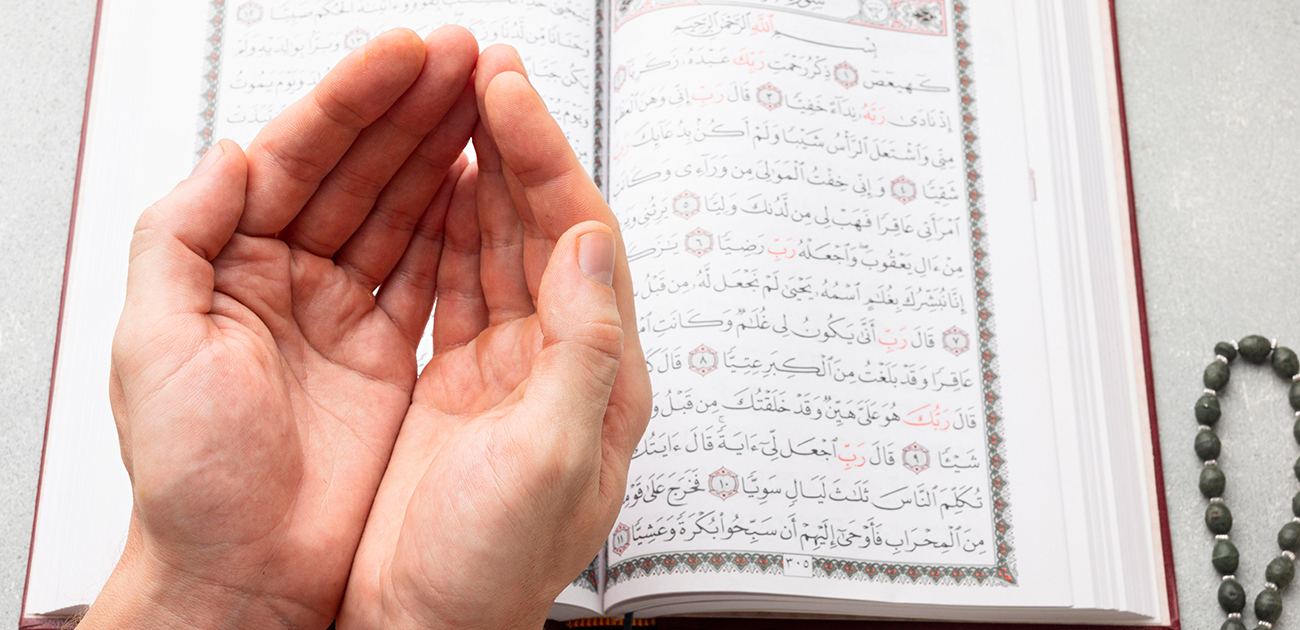 بِسْمِ ٱللَّهِ ٱلرَّحْمَٰنِ ٱلرَّحِيمِ
كٓهيعٓصٓ ١ ذِكْرُ رَحْمَتِ رَبِّكَ عَبْدَهُۥ زَكَرِيَّا
إِذْ نَادَىٰ رَبَّهُۥ نِدَآءً خَفِيًّا ٣ قَالَ رَبِّ إِنِّى وَهَنَ ٱلْعَظْمُ
مِنِّى وَٱشْتَعَلَ ٱلرَّأْسُ شَيْبًا وَلَمْ أَكُنۢ بِدُعَآئِكَ رَبِّ
شَقِيًّا ٤ وَإِنِّى خِفْتُ ٱلْمَوَٰلِىَ مِن وَرَآءِى وَكَانَتِ
ٱمْرَأَتِى عَاقِرًا فَهَبْ لِى مِن لَّدُنكَ وَلِيًّا ٥ يَرِثُنِى وَيَرِ
مِنْ ءَالِ يَعْقُوبَ وَٱجْعَلْهُ رَبِّ رَضِيًّا ٦ يَٰزَكَرِ
إِنَّا نُبَشِّرُكَ بِغُلَٰمٍ ٱسْمُهُۥ يَحْيَىٰ لَمْ نَجْعَل لَّهُۥ مِن قَبْلُ
٧ قَالَ رَبِّ أَنَّىٰ يَكُونُ لِى غُلَٰمٌ وَكَانَتِ ٱمْ
عَاقِرًا وَقَدْ بَلَغْتُ مِنَ ٱلْكِبَرِ عِتِيًّا ٨ قَالَ كَ
قَالَ رَبُّكَ هُوَ عَلَىَّ هَيِّنٌ وَقَدْ خَلَقْتُكَ مِن قَبْلُ وَ
شَيْـًٔا ٩ قَالَ رَبِّ ٱجْعَل لِّىٓ ءَايَةً قَالَ ءَايَتُكَ
تُكَلِّمَ ٱلنَّاسَ ثَلَٰثَ لَيَالٍ سَوِيًّا ١٠ فَخَرَجَ عَلَىٰ قَوْمِ
مِنَ ٱلْمِحْرَابِ فَأَوْحَىٰٓ إِلَيْهِمْ أَن سَبِّحُوا۟ بُكْرَةً وَعَشِيًّا ١١
٣٠٥
وَءَاتَيْنَٰهُ ٱلْحُكْمَ صَبِيًّا ١٢
وَحَنَانًا مِّن لَّدُنَّا وَزَ ١٣ وَبَرًّۢا بِوَٰلِدَيْهِ وَلَمْ
يَكُن جَبَّا وَيَوْمَ يَمُوتُ
وَيَوْمَ